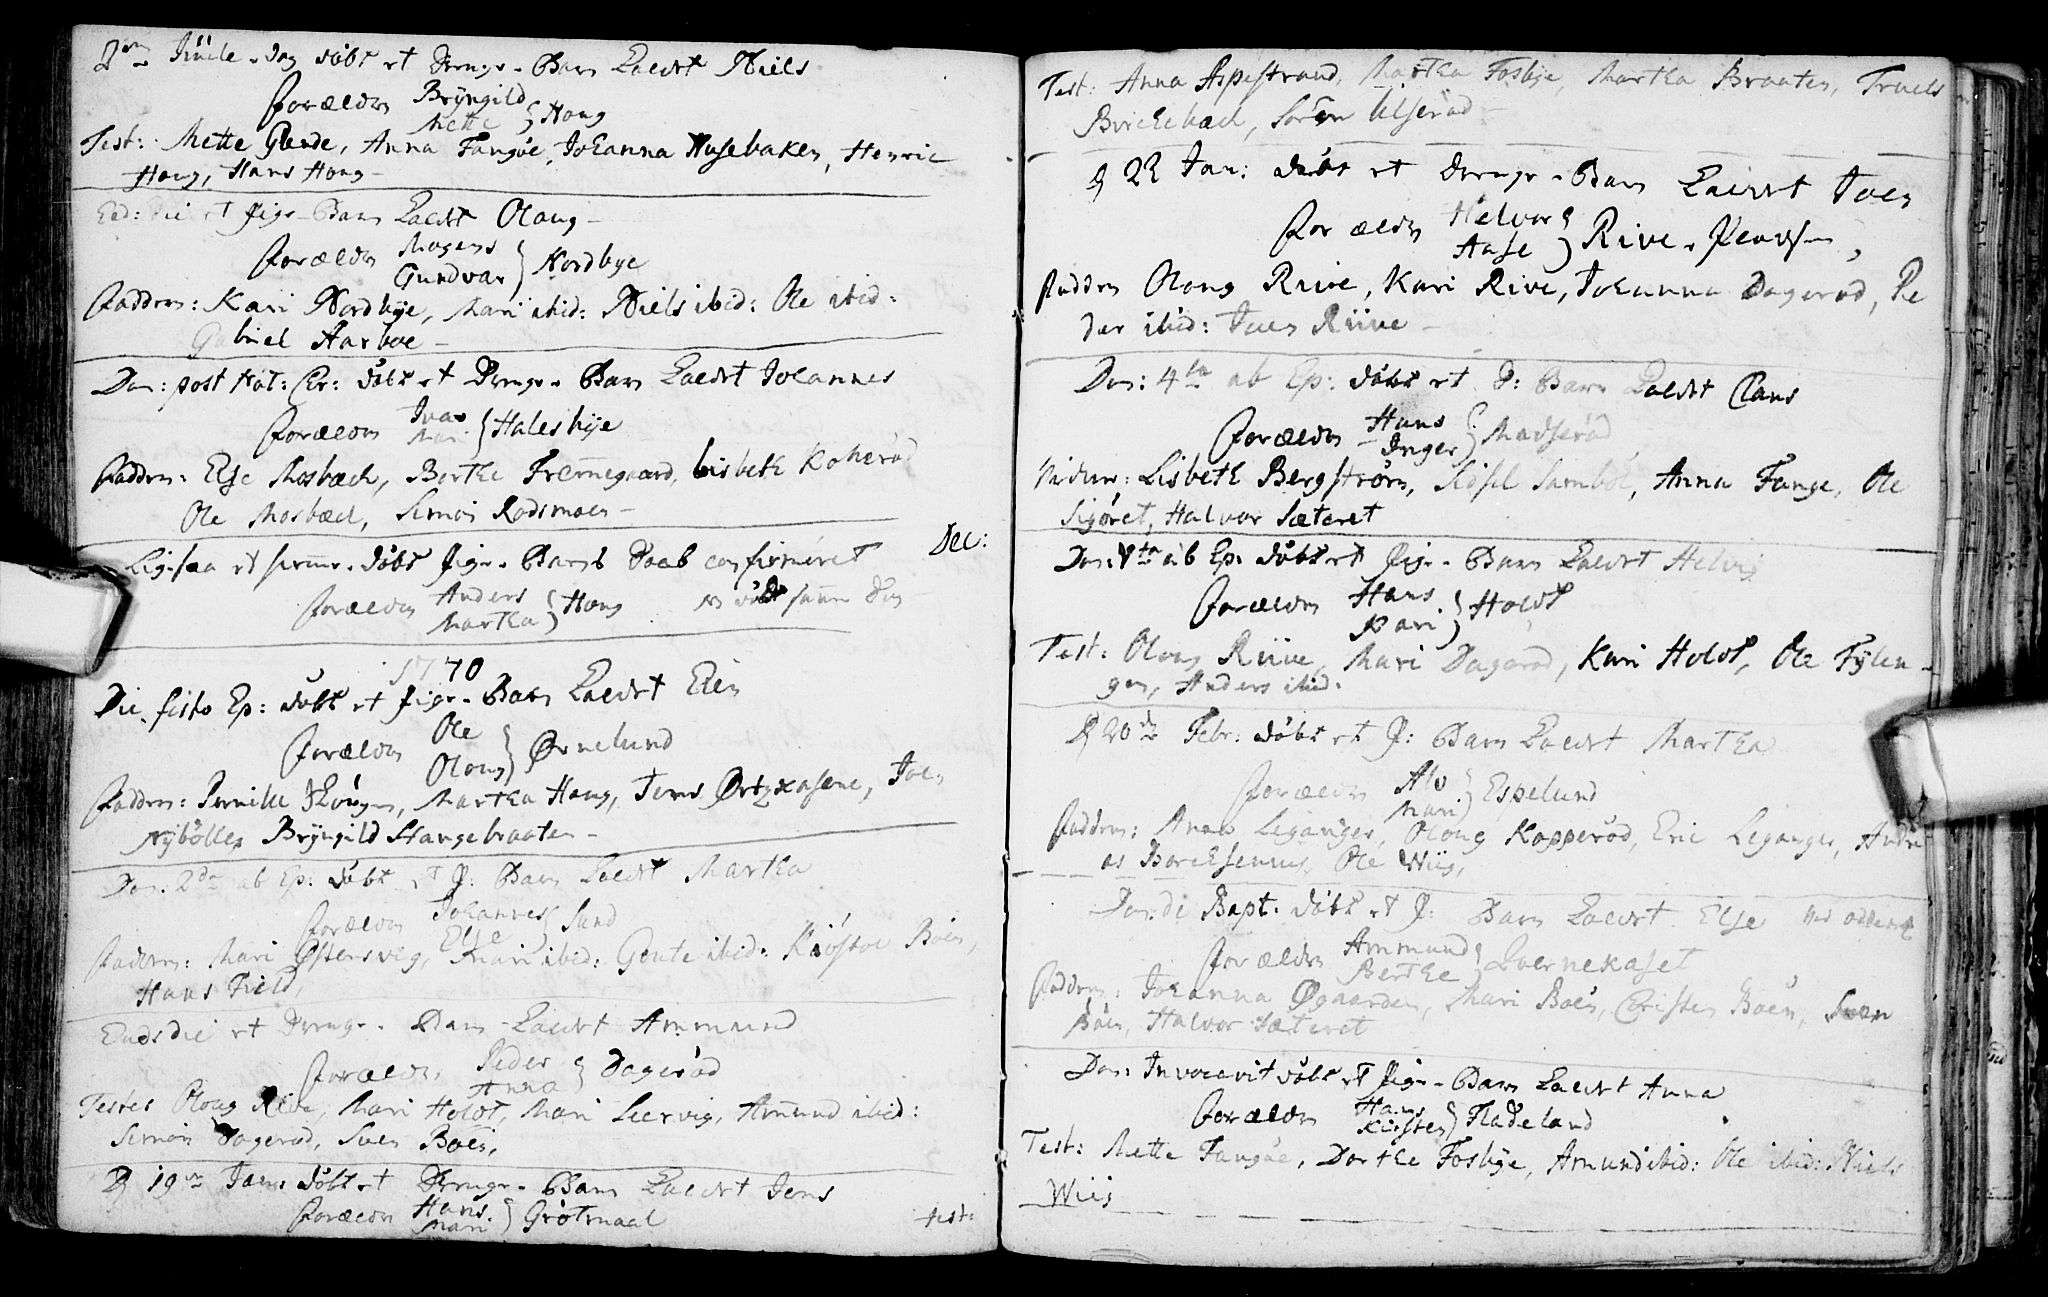 2den Juule-dag döbt et Drenge-Barn kaldet Niels
Forældre Bryngild
Mette } Houg
Test: Mette Grande, Anna Tangöe, Johanna Husebaken, Henric
Houg, Hans Houg
Eod: die et Pige-Barn kaldet Oloug
Forældre Mogens
Gundvar } Nordbye
Faddere: Kari Nordbye, Mari ibid: Niels ibid: Ole ibid:
Gabriel Aarboe
Dom: post Nat: Chr: döbt et Drenge-Barn kaldet Johannes
Forældre Ivar
Mari } Halesbye
Faddere: Else Mosbæch, Berthe Fremmegaard, Lisbeth Kokeröd
Ole Mosbæch, Simon Rodsmoen
Ligesaa et hiemme-döbt Pige-Barns Daab confirmeret
Dec:
Forældre Anders
Martha } Houg
samme Dag
1770
Die festo Ep: döbt et Pige-Barn kaldet Elen
Forældre Ole
Oloug } Ørnelund
Faddere: Pernille Skougen, Martha Houg, Jens Ørtzkasene, Joen
Nybölle, Bryngild Stangebraaten
Dom: 2da ab Ep: döbt et P: Barn kaldet Martha
Forældre Johannes
Else } Sand
Faddere: Mari Østensvig, Mari ibid: Goute ibid: Kiöstoe Boen,
Hans Field,
Eods die et Drenge-Barn kaldet Ammund
Forældre Peder
Anna } Dageröd
Testes Oloug Rive, Mari Holdt, Mari Leervig, Ammund ibid:
Simon Dageröd, Sven Boen,
D 19de Jan: döbt et Drenge-Barn kaldet Jens
Forældre Hans
Mari } Grötmaal
test:
Test: Anna Aspestrand, Martha Fosbye, Martha Braaten, Truels
Birchebæch, Sören Ulseröd
D 22 Jan: döbt et Drenge-Barn kaldet Joen
Forældre Helvor
Aase } Rive
Faddere Oloug Riive, Kari Rive, Johanna Dageröd, Pe
der ibid: Joen Riive
Dom: 4ta ab Ep: döbt et D: Barn kaldet Claus
Forældre Hans
Inger } Madseröd
Vidner: Lisbeth Bergström, Sidsel Samböe, Anna Tange, Ole
Sigöret, Halvor Sæteret
Dom: 5ta ab Ep: döbt et Pige-Barn kaldet Helvig
Forældre Hans
Kari } Holdt
Test: Oloug Riive, Mari Dageröd, Kari Holdt, Ole Fylen-
gen, Anders ibid:
D 20de Febr: döbt et P: Barn kaldet Martha
Forældre Alv
Mari } Espelund
Faddere: Anna Leganger, Oloug Kopperöd, Eric Leganger, Andre
as Borchsenius, Ole Wiig,
Dom: di Bapt: döbt et P: Barn kaldet Else
Forældre Ammund
Berthe } Qvernekaset
Faddere: Johanna Øgaarden, Mari Boen, Christen Boen, Sven
Boen, Halvor Sæteret
Dom: Invocavit döbt et Pige-Barn kaldet Anna
Forældre Hans
Kirsten } Fladeland
Test: Mette Tangöe, Dorthe Fosbye, Amund ibid: Ole ibid: Niels
Wiig